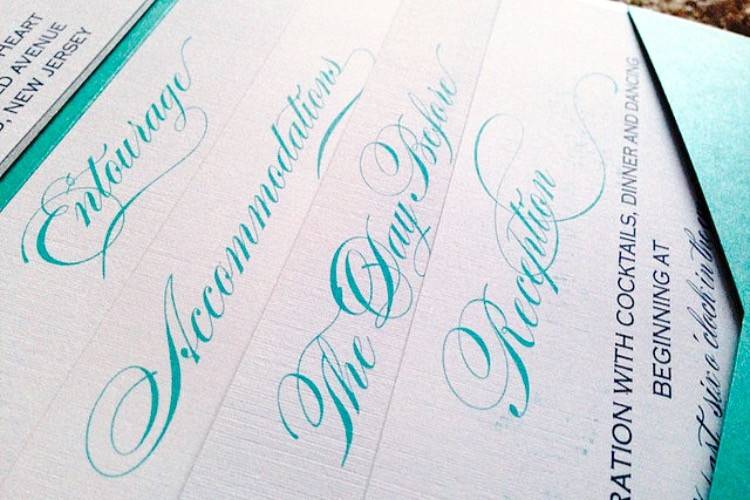 HEART
AVENUE
NEW JERSEY
Entourage
Accommodations
The Day Before
Reception
RATION WITH COCKTAILS, DINNER AND DANCING
BEGINNING AT
past six o'clock in the